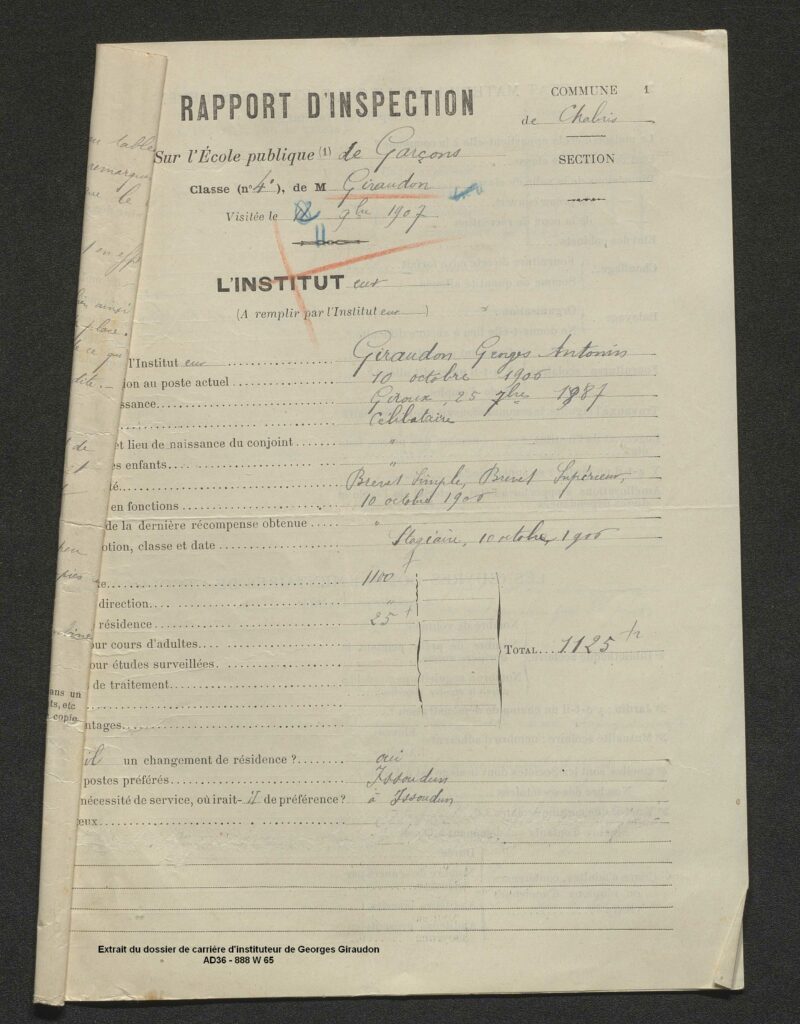 RAPPORT D'INSPECTION
COMMUNE 1
de Chabris
SECTION
Sur l'École publique (1) de Garçons
Classe (n° 4e), de M Giraudon
Visitée le 11 9bre 1907
L'INSTITUT eur
(A remplir par l'Institut eur)
l'Institut eur Giraudon Georges Antonin
ion au poste actuel 10 octobre 1906
issance. Giroux, 25 7bre 1887
Célibataire
et lieu de naissance du conjoint "
es enfants "
té. Brevet Simple, Brevet Supérieur,
en fonctions 10 octobre 1906
de la dernière récompense obtenue "
otion, classe et date Stagiaire, 10 octobre, 1906
te. 1100 f
direction. "
résidence 25 f
our cours d'adultes
our études surveillées
TOTAL 1125 fr
de traitement
ntages
il un changement de résidence ? oui
postes préférés Issoudun
nécessité de service, où irait-il de préférence ? à Issoudun
eux
en table
remarqu
que le
t en eff
ainsi
place.
ce qui
de
ans un
ts, etc
copie
Extrait du dossier de carrière d'instituteur de Georges Giraudon
AD36 - 888 W 65